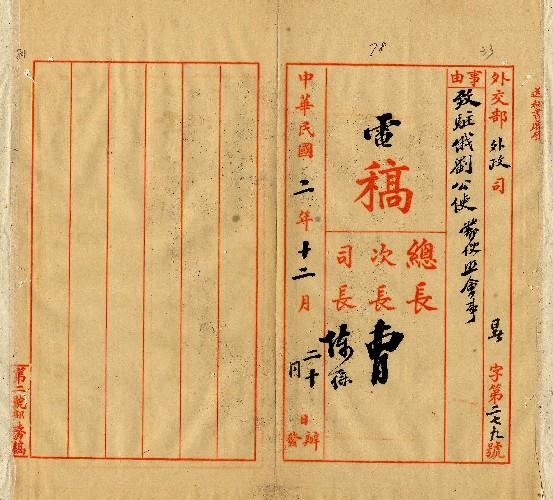 外交部 外政 司 字第二七九號
事由
致駐俄劉公使 蒙使照會事
電稿
總長
次長 曹
司長 陳
中華民國二年十二月二十日辦
月 日發
第二號部務稿
78